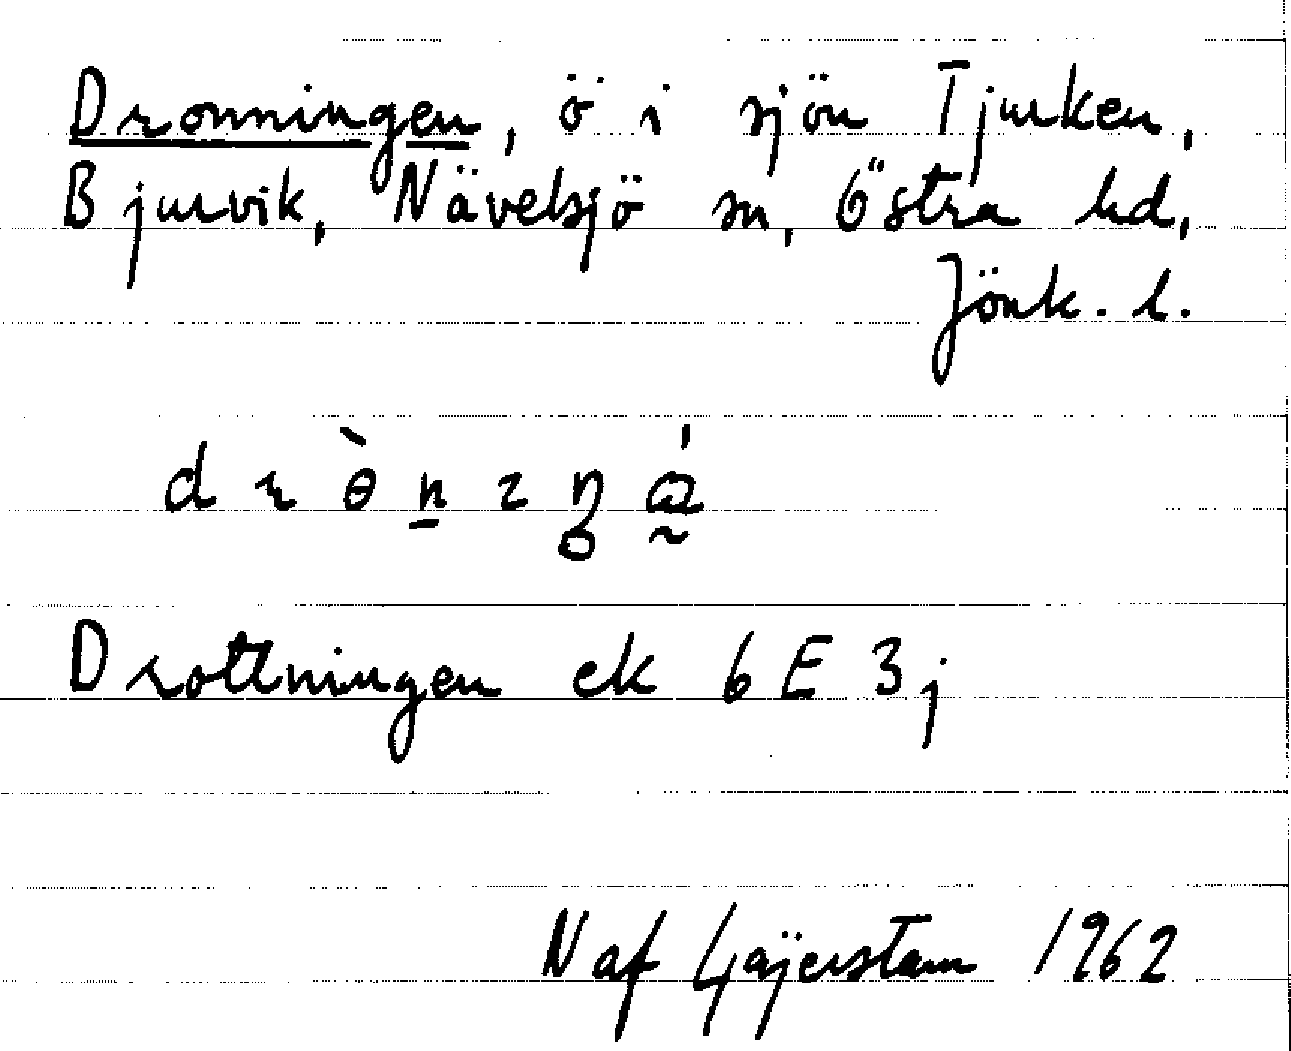 Dronningen, ö i sjön Tjurken,
Bjurvik, Nävelsjö sn, Östra hd,
Jönk. l.
Drottningen ek 6E3j
N af Gajerstam 1962